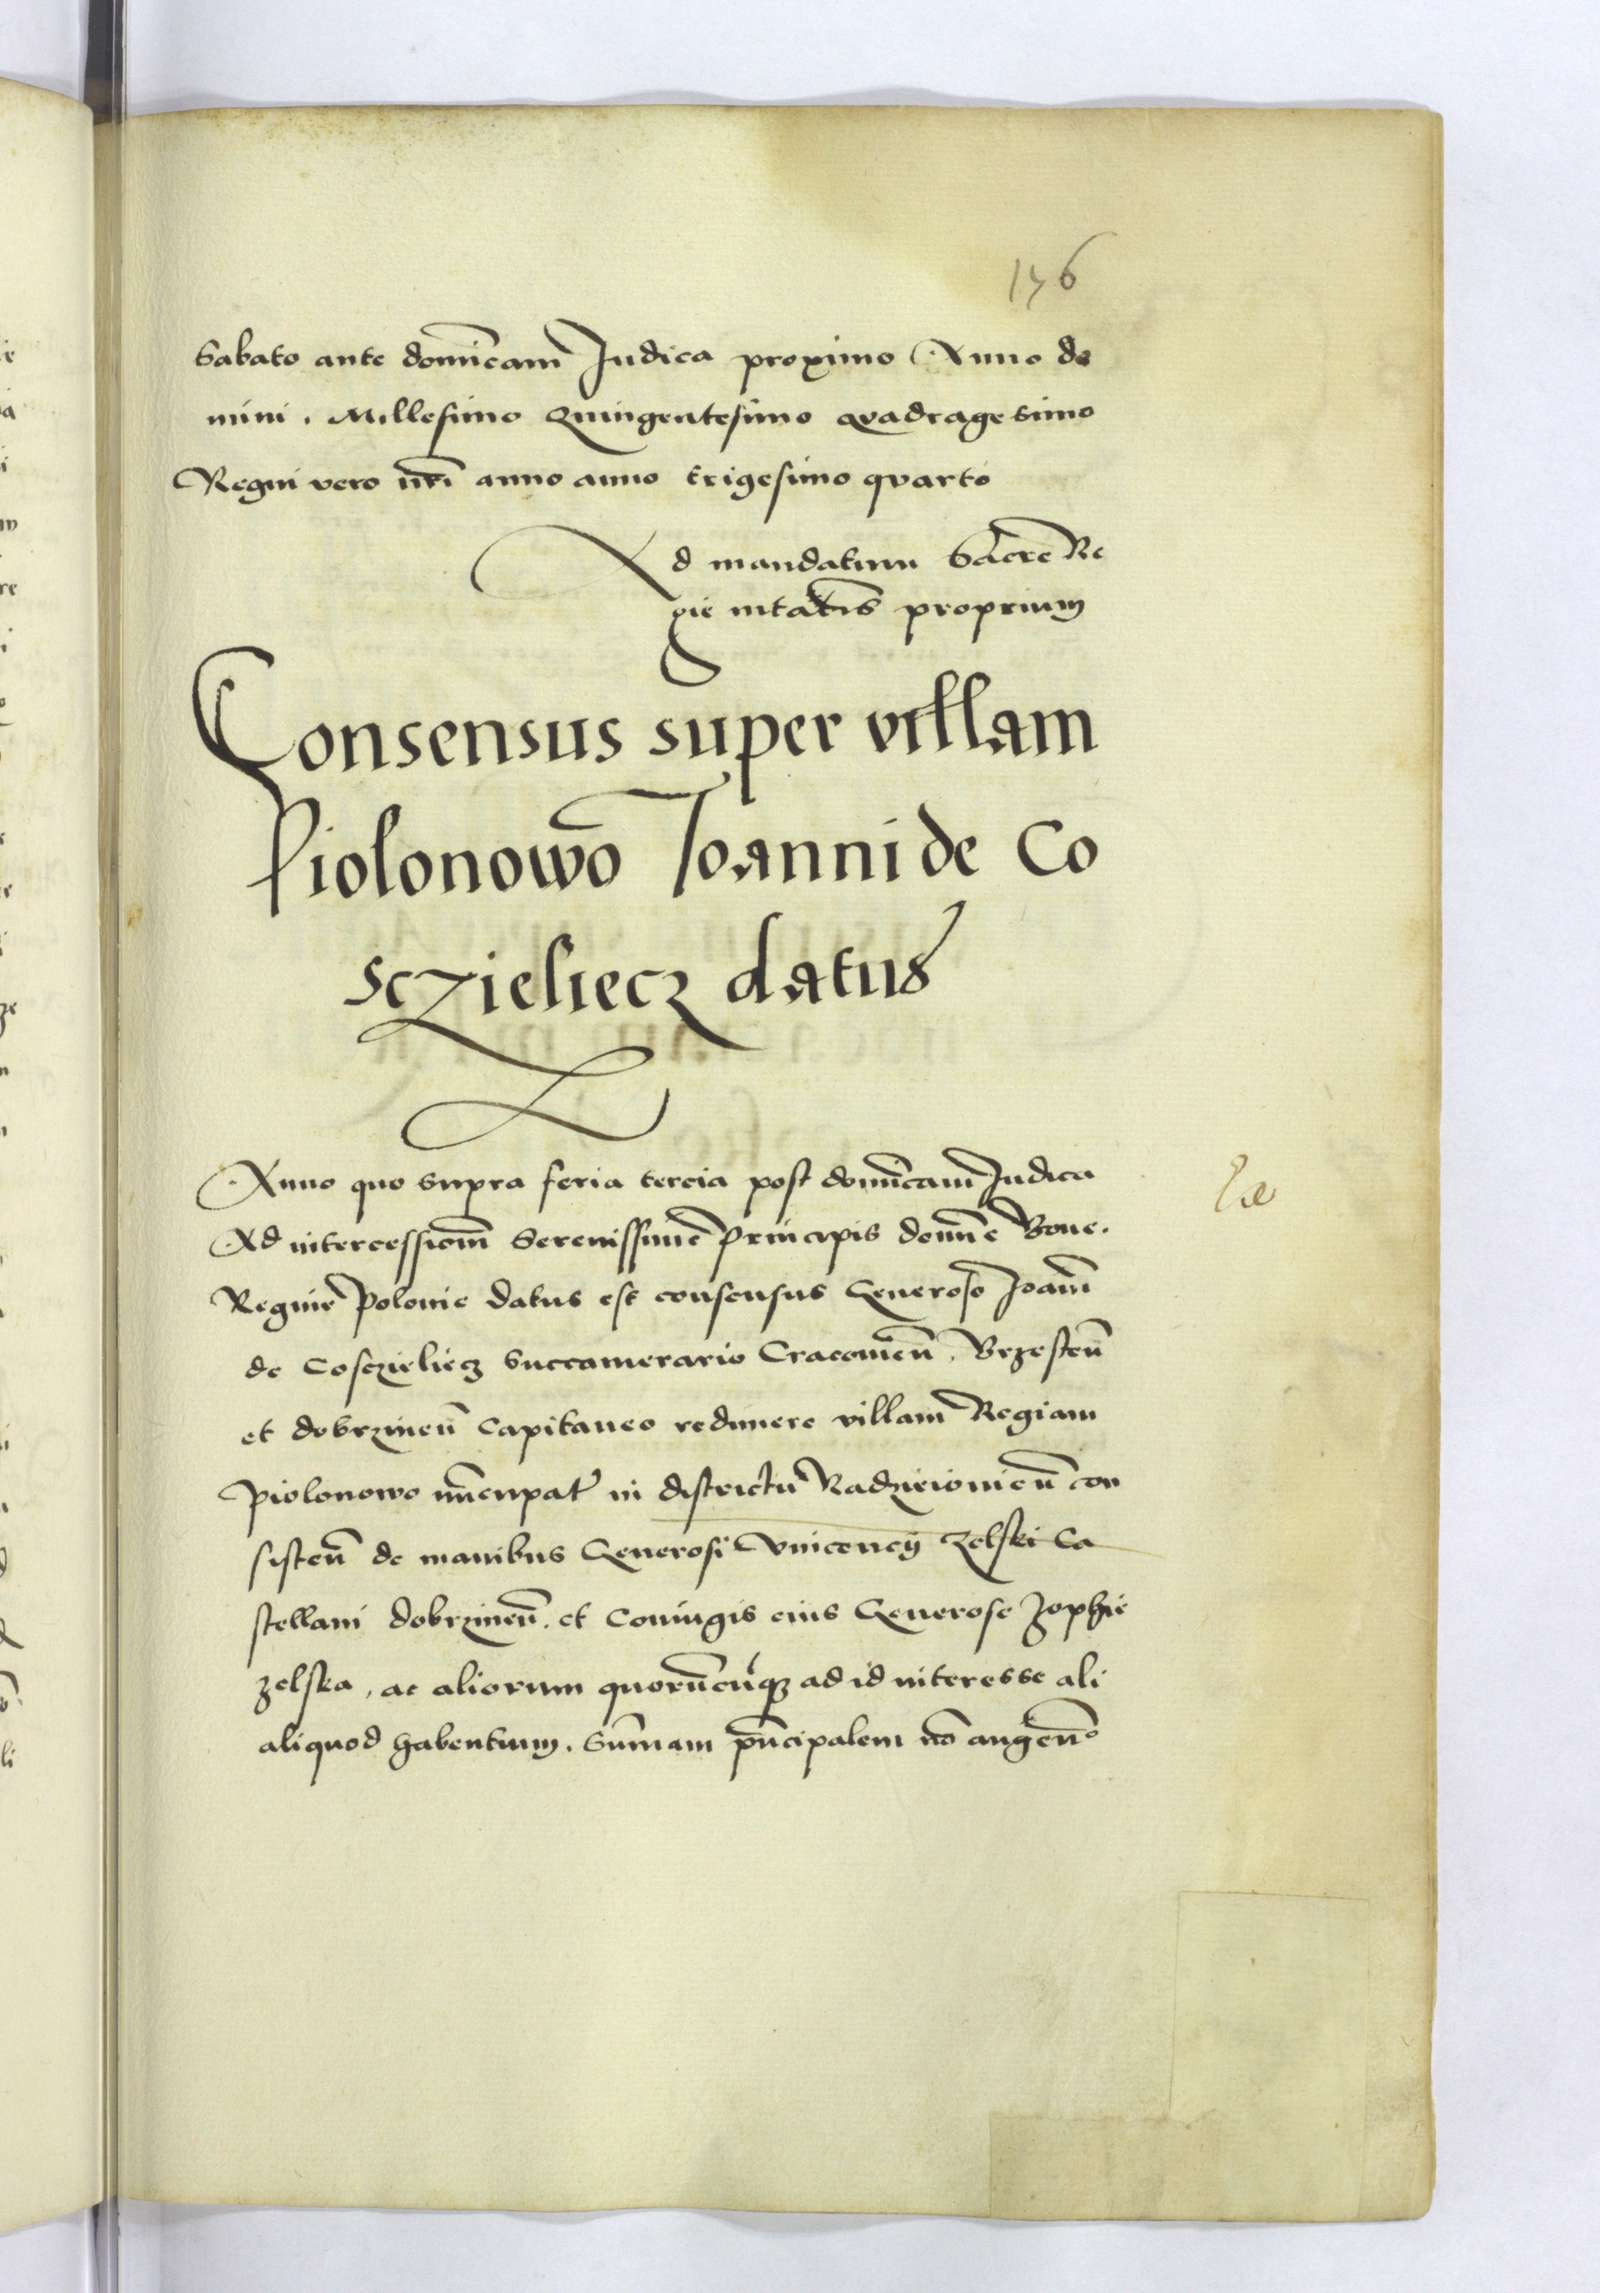 156
Sabato ante domīcam Iudica proximo Anno do
mini. Millesimo Quingentesimo quadragesimo
Regni vero nri̅ anno anno trigesimo quarto
Ad mandatum Sacre Re
gie mtatis proprium
Consensus super villam
Piolonowo Ioanni de Co
sczieliecz datus
Anno quo supra feria tercia post domīcam Iudica
Ad intercessiom̄ Serenissime principis domīe Bone.
Regine Polonie datus est consensus Generoso Joanī
de Cosczieliecz Succamerario Cracovien̄. Brzesten̄
et dobrzinen̄ Capitaneo redimere villam Regiam
Piolonowo nūcupat in districtu Radzieiovien̄ con
sisten̄ de manibus Generosi Vincencij Zelski Ca
stellani dobrzinen̄. et Coniugis eius Generose Zophie
zelska, ac aliorum quorūcūqꝫ ad id interesse ali
aliquod habentium. Summam pn̄cipalem nō augen̄o